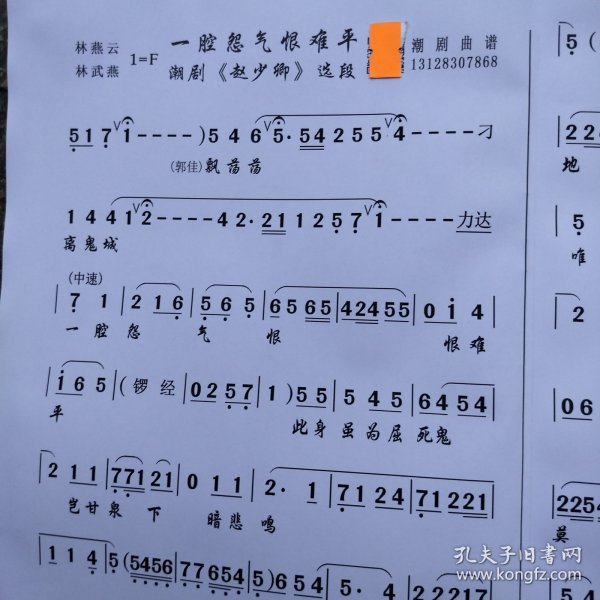 林燕云 1=F 一腔怨气恨难平 潮剧曲谱
林武燕 潮剧《赵少卿》选段 13128307868
5 1 7 i - - - - ) 5 4 6 5· 5 4 2 5 5 4 - - - - 刁
(郭佳)飘荡荡
1 4 4 1 2 - - - - 4 2· 2 1 1 2 5 7 1 - - - - 力达
离鬼城
(中速)
7 1 | 2 1 6 | 5 6 5 | 6 5 6 5 | 4 2 4 5 5 | 0 i 4
一腔怨气恨 恨难
i 6 5 | ( 锣 经 | 0 2 5 7 | 1 ) 5 5 | 5 4 5 | 6 4 5 4
平 此身虽为屈死鬼
2 1 1 | 7 7 1 2 1 | 0 1 1 | 2· 1 | 7 1 2 4 | 7 1 2 2 1
岂甘泉下 暗悲鸣
1 1 4 | 5 ( 5 4 5 6 | 7 7 6 5 4 | 5 ) 6 5 4 | 5· 5 | 2 2 2 1 7
5 (
2 2
地
5
唯
2
0 6
2 2 5 4
莫
孔夫子旧书网
www.kongfz.com